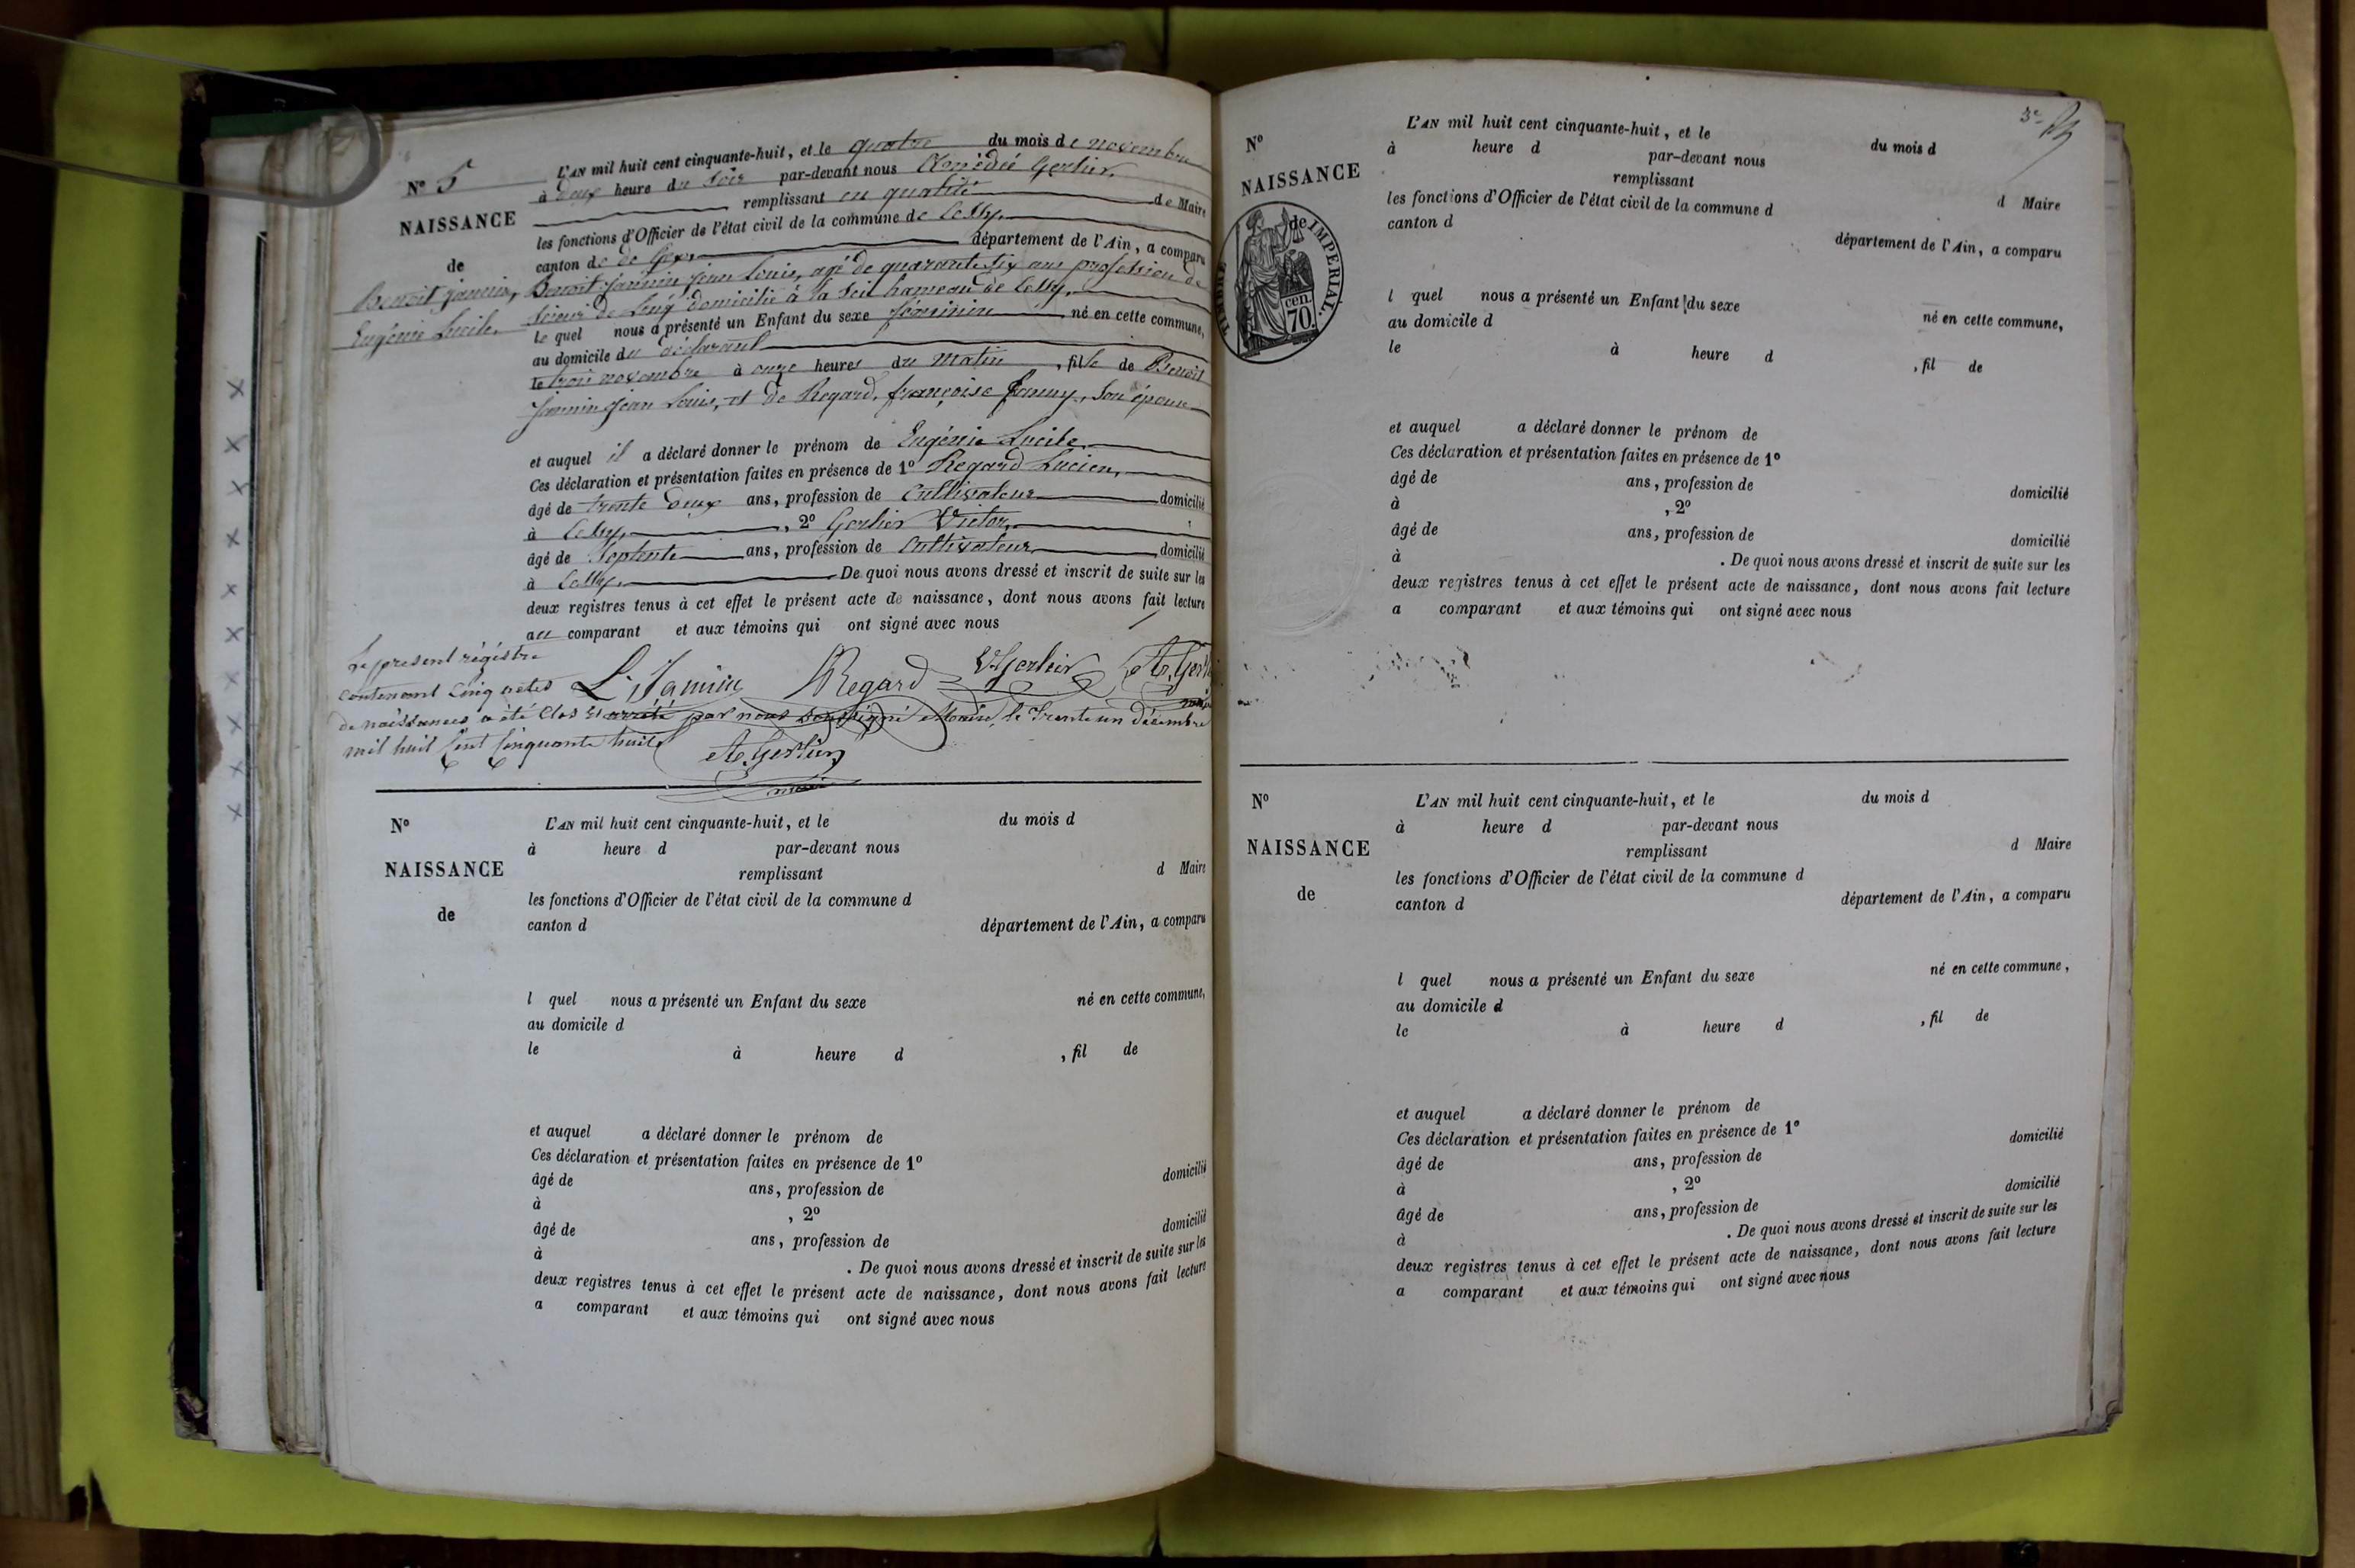 N° 5
NAISSANCE
de
Benoit Jannin,
Eugénie Lucile.
L'AN mil huit cent cinquante-huit, et le quatre du mois de novembre
à deux heure du Soir par-devant nous Amédée Gerlier,
remplissant en qualité de Maire
les fonctions d'Officier de l'état civil de la commune de Lelex,
canton de de Gex, département de l'Ain, a comparu
Benoit Jannin Jean Louis, agé de quarante six ans profession de
Scieur de Long domicilié à la Scie hameau de Lelex,
Le quel nous a présenté un Enfant du sexe féminin né en cette commune,
au domicile du déclarant
le trois novembre à onze heures du Matin, fille de Benoit
Jannin Jean Louis, et de Regard, françoise fanny, Son épouse
et auquel il a déclaré donner le prénom de Eugénie Lucile
Ces déclaration et présentation faites en présence de 1° Regard Lucien,
âgé de trente deux ans, profession de Cultivateur domicilié
à Lelex, , 2° Gerlier Victor,
âgé de Septente ans, profession de Cultivateur domicilié
à Lelex, De quoi nous avons dressé et inscrit de suite sur les
deux registres tenus à cet effet le présent acte de naissance, dont nous avons fait lecture
au comparant et aux témoins qui ont signé avec nous
L. Jamin Regard V. Gerlier A. Gerlier
Le present régistre
contenant cinq actes
de naissances a été clos et arrêté par nous soussigné Maire, le Trente un décembre
mil huit Cent Cinquante huit
A. Gerlier
N°
NAISSANCE
de
L'AN mil huit cent cinquante-huit, et le du mois d
à heure d par-devant nous
remplissant d Maire
les fonctions d'Officier de l'état civil de la commune d
canton d département de l'Ain, a comparu
l quel nous a présenté un Enfant du sexe né en cette commune,
au domicile d
le à heure d , fil de
et auquel a déclaré donner le prénom de
Ces déclaration et présentation faites en présence de 1°
âgé de ans, profession de domicilié
à , 2°
âgé de ans, profession de domicilié
à . De quoi nous avons dressé et inscrit de suite sur les
deux registres tenus à cet effet le présent acte de naissance, dont nous avons fait lecture
a comparant et aux témoins qui ont signé avec nous
3e
N°
NAISSANCE
de
TIMBRE IMPERIAL.
70 cen
L'AN mil huit cent cinquante-huit, et le du mois d
à heure d par-devant nous
remplissant d Maire
les fonctions d'Officier de l'état civil de la commune d
canton d département de l'Ain, a comparu
l quel nous a présenté un Enfant du sexe né en cette commune,
au domicile d
le à heure d , fil de
et auquel a déclaré donner le prénom de
Ces déclaration et présentation faites en présence de 1°
âgé de ans, profession de domicilié
à , 2°
âgé de ans, profession de domicilié
à . De quoi nous avons dressé et inscrit de suite sur les
deux registres tenus à cet effet le présent acte de naissance, dont nous avons fait lecture
a comparant et aux témoins qui ont signé avec nous
N°
NAISSANCE
de
L'AN mil huit cent cinquante-huit, et le du mois d
à heure d par-devant nous
remplissant d Maire
les fonctions d'Officier de l'état civil de la commune d
canton d département de l'Ain, a comparu
l quel nous a présenté un Enfant du sexe né en cette commune,
au domicile d
le à heure d , fil de
et auquel a déclaré donner le prénom de
Ces déclaration et présentation faites en présence de 1°
âgé de ans, profession de domicilié
à , 2°
âgé de ans, profession de domicilié
à . De quoi nous avons dressé et inscrit de suite sur les
deux registres tenus à cet effet le présent acte de naissance, dont nous avons fait lecture
a comparant et aux témoins qui ont signé avec nous